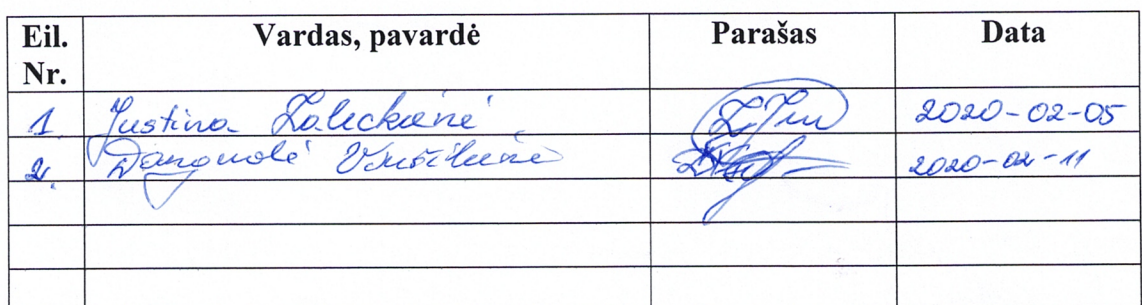 Eil. Nr. Vardas, pavardė Parašas Data
1. Justina Zaleckienė 2020-02-05
2. Danguolė 2020-02-11